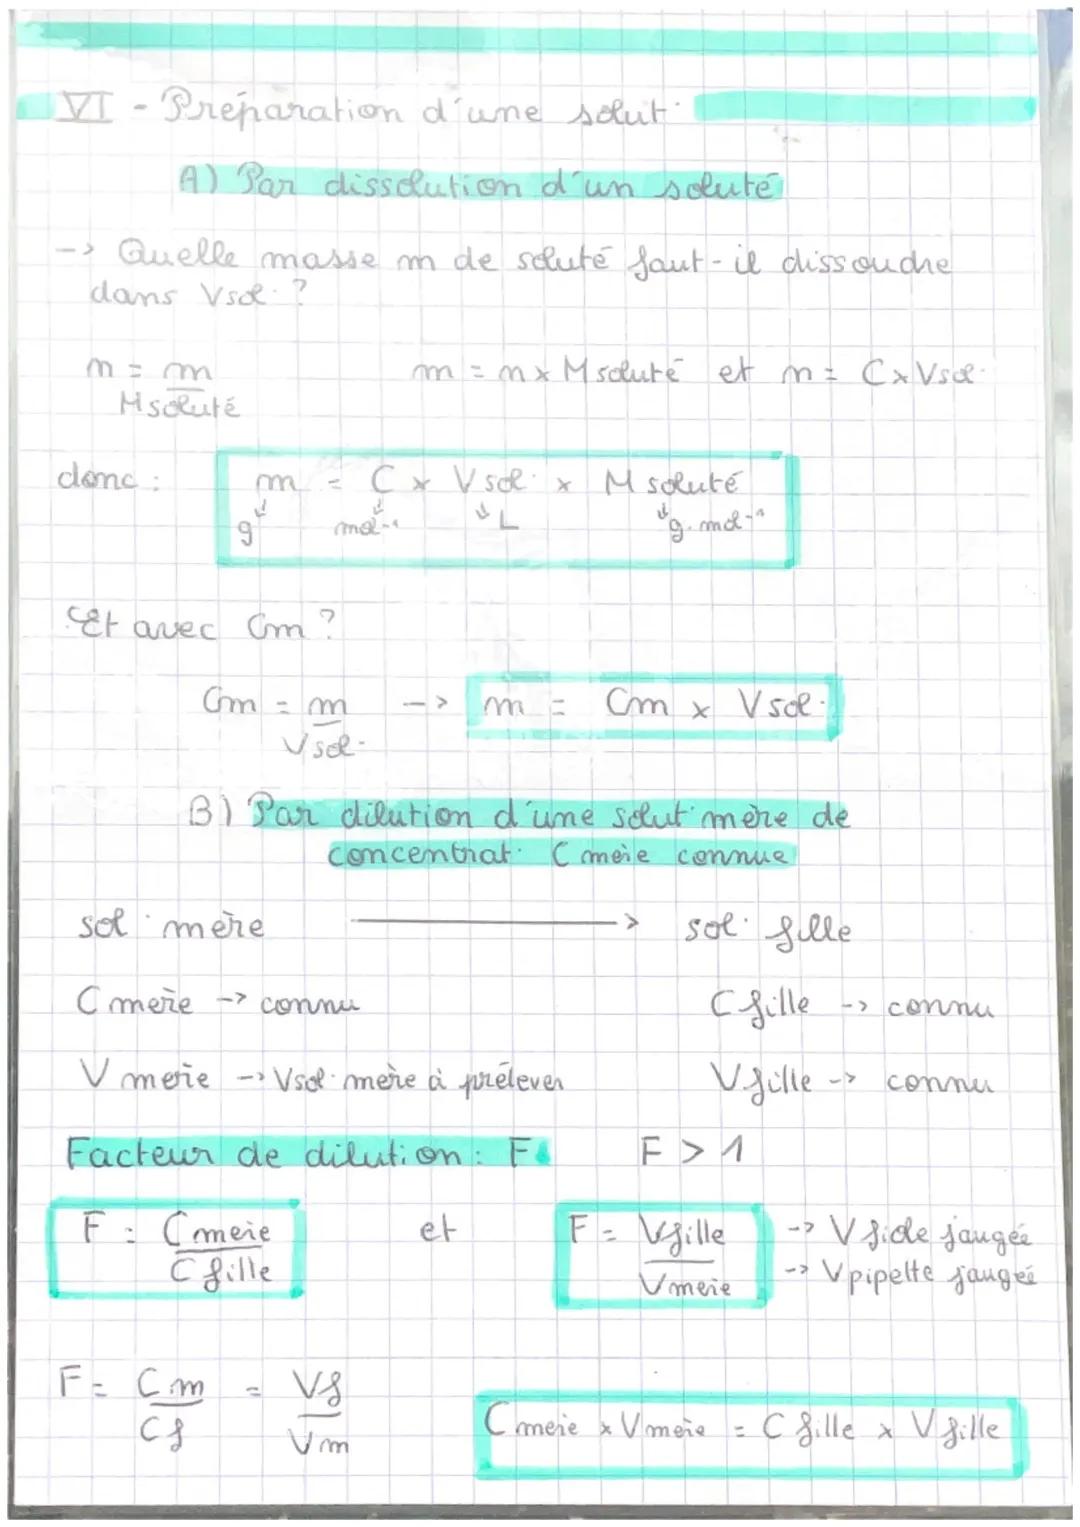 VI - Préparation d'une solut°
A) Par dissolution d'un soluté
-> Quelle masse m de soluté faut-il dissoudre
dans Vsol. ?
n = m
M soluté
m = n x M soluté et n = C x Vsol.
donc :
m = C x Vsol. x M soluté
g mol-1 L g.mol-1
Et avec Cm ?
Cm = m -> m = Cm x Vsol.
Vsol.
B) Par dilution d'une solut° mère de
concentrat° C mère connue
sol° mère -> sol° fille
C mère -> connu C fille -> connu
V mère -> Vsol° mère à prélever V fille -> connu
Facteur de dilution : F F > 1
F = C mère et F = V fille -> V fiole jaugée
C fille V mère -> V pipette jaugée
F = Cm = Vf
Cf Vm
C mère x V mère = C fille x V fille